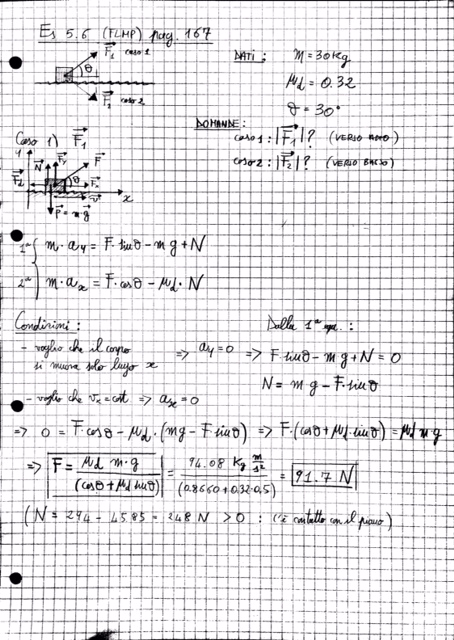 Es 5.6 (FLMP) pag. 167
F₁ caso 1
θ
F₂ caso 2
DATI: m = 30 kg
μd = 0.32
θ = 30°
DOMANDE:
caso 1: |F₁|? (VERSO ALTO)
caso 2: |F₂|? (VERSO BASSO)
Caso 1) F₁
y N Fy F
Fd θ Fx
v x
P = m·g
1ª m·ay = F·sinθ - mg + N
2ª m·ax = F·cosθ - μd·N
Condizioni:
Dalla 1ª eq.:
- voglio che il corpo si muova solo lungo x ⇒ ay = 0 ⇒ F sinθ - mg + N = 0
N = mg - F·sinθ
- voglio che vx = cost ⇒ ax = 0
⇒ 0 = F cosθ - μd·(mg - F sinθ) ⇒ F·(cosθ + μd sinθ) = μd m·g
⇒ F = μd m·g / (cosθ + μd sinθ) = 94.08 kg m/s² / (0.8660 + 0.32·0.5) = 91.7 N
(N = 294 - 45.85 = 248 N > 0 : c'è contatto con il piano)